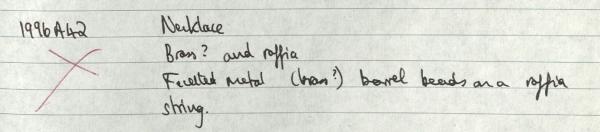 1996A42 Necklace
Brass? and raffia
Facetted metal (brass?) barrel beads on a raffia
string.